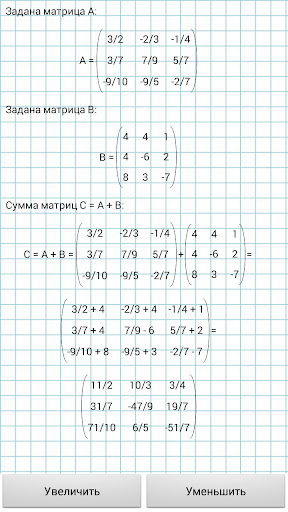 Задана матрица A:
3/2 -2/3 -1/4
A = 3/7 7/9 5/7
-9/10 -9/5 -2/7
Задана матрица B:
4 4 1
B = 4 -6 2
8 3 -7
Сумма матриц C = A + B:
3/2 -2/3 -1/4 4 4 1
C = A + B = 3/7 7/9 5/7 + 4 -6 2 =
-9/10 -9/5 -2/7 8 3 -7
3/2 + 4 -2/3 + 4 -1/4 + 1
3/7 + 4 7/9 - 6 5/7 + 2 =
-9/10 + 8 -9/5 + 3 -2/7 - 7
11/2 10/3 3/4
31/7 -47/9 19/7
71/10 6/5 -51/7
Увеличить Уменьшить